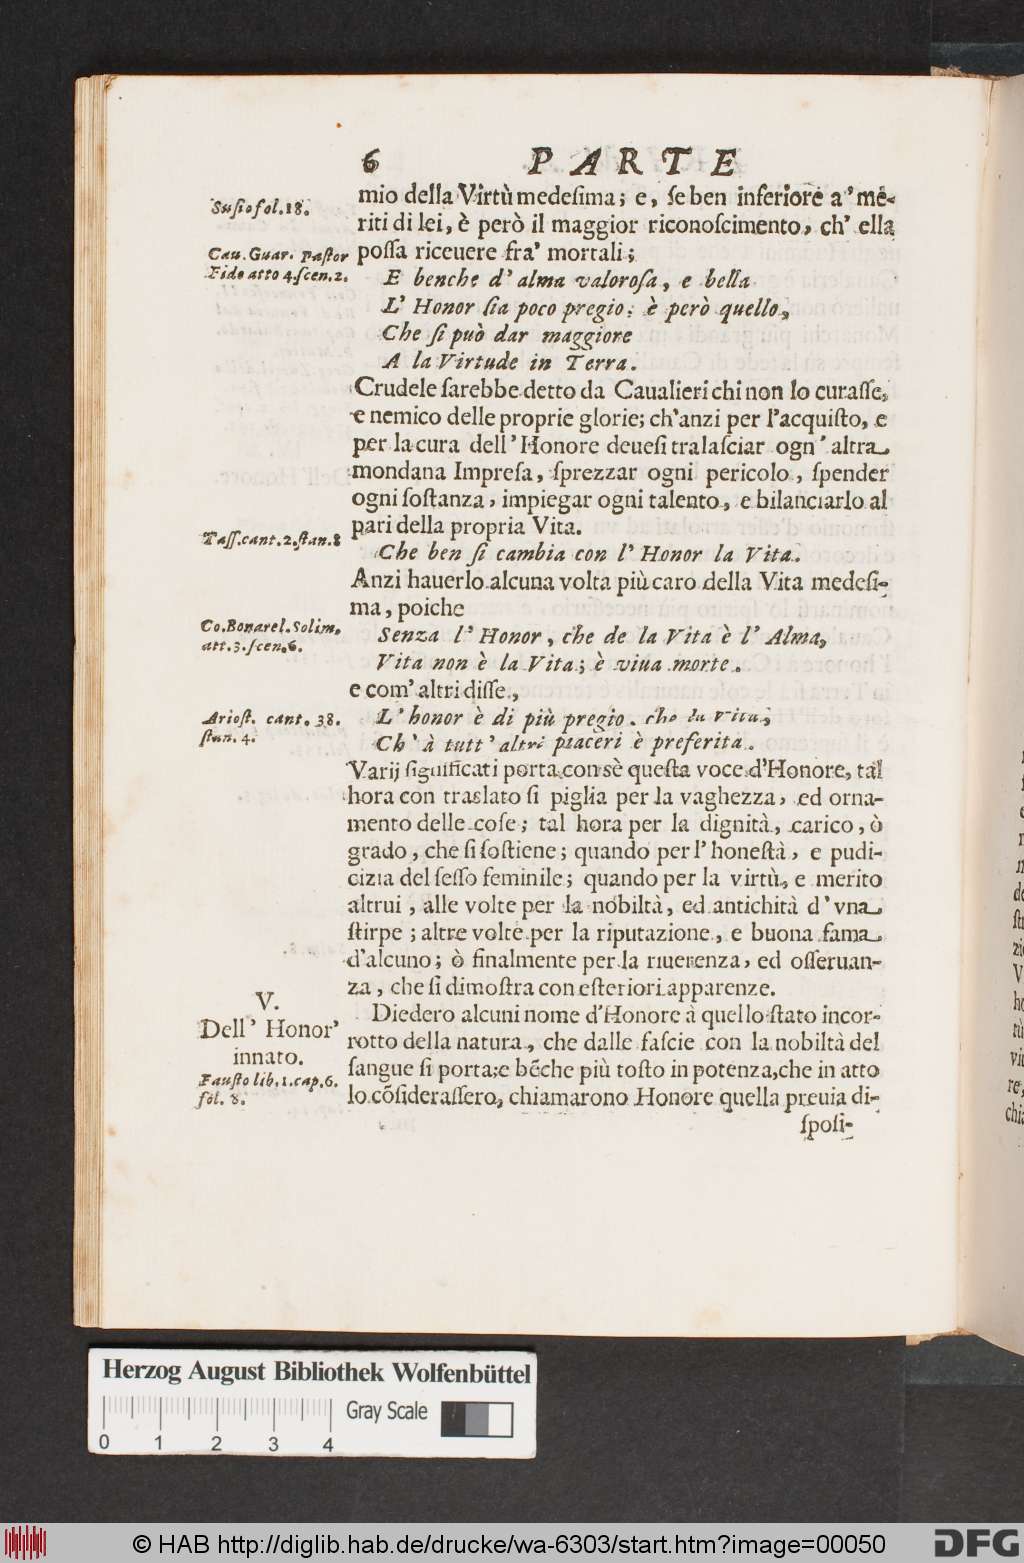 6 PARTE
mio della Virtù medeſima; e, ſe ben inferiore a' me-
riti di lei, è però il maggior riconoſcimento, ch' ella
poſſa riceuere fra' mortali;
Suſio fol. 18.
Cau. Guar. Paſtor
Fido atto 4. ſcen. 2.
E benche d' alma valoroſa, e bella
L' Honor ſia poco pregio; è però quello,
Che ſi può dar maggiore
A la Virtude in Terra.
Crudele ſarebbe detto da Caualieri chi non lo curaſſe,
e nemico delle proprie glorie; ch'anzi per l'acquiſto, e
per la cura dell' Honore deueſi tralaſciar ogn' altra
mondana Impreſa, ſprezzar ogni pericolo, ſpender
ogni ſoſtanza, impiegar ogni talento, e bilanciarlo al
pari della propria Vita.
Taſſ. cant. 2. ſtan. 8
Che ben ſi cambia con l' Honor la Vita.
Anzi hauerlo alcuna volta più caro della Vita medeſi-
ma, poiche
Co. Bonarel. Solim.
att. 3. ſcen. 6.
Senza l' Honor, che de la Vita è l' Alma,
Vita non è la Vita; è viua morte.
e com' altri diſſe,
Arioſt. cant. 38.
ſtan. 4.
L' honor è di più pregio, che la Vita;
Ch' à tutt' altri piaceri è preferita.
Varij ſignificati porta con sè queſta voce d'Honore, tal
hora con traslato ſi piglia per la vaghezza, ed orna-
mento delle coſe; tal hora per la dignità, carico, ò
grado, che ſi ſoſtiene; quando per l' honeſtà, e pudi-
cizia del ſeſſo feminile; quando per la virtù, e merito
altrui, alle volte per la nobiltà, ed antichità d' vna
ſtirpe; altre volte per la riputazione, e buona fama
d'alcuno; ò finalmente per la riuerenza, ed oſſeruan-
za, che ſi dimoſtra con eſteriori apparenze.
V.
Dell' Honor'
innato.
Fauſto lib. 1. cap. 6.
fol. 8.
Diedero alcuni nome d'Honore à quello ſtato incor-
rotto della natura, che dalle faſcie con la nobiltà del
ſangue ſi porta; e bẽche più toſto in potenza, che in atto
lo cõſideraſſero, chiamarono Honore quella preuia di-
ſpoſi-
Herzog August Bibliothek Wolfenbüttel
0 1 2 3 4
Gray Scale
© HAB http://diglib.hab.de/drucke/wa-6303/start.htm?image=00050
DFG